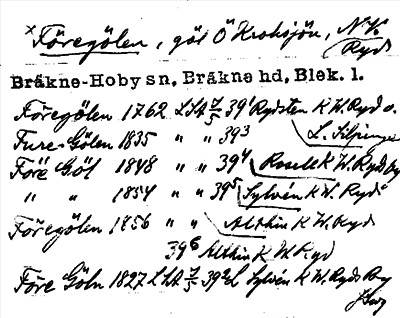 x Föregölen, göl Ö Kroksjön, N.V. Ryd
Bräkne-Hoby sn, Bräkne hd, Blek. l.
Föregölen 1762 LSA 7/5 39¹ Rydsten K W. Ryd o.
L. Siljinge
Fure-Gölen 1835 " " 39³
Före Göl 1848 " " 39⁴ K W. Ryd by
" " 1854 " " 39⁵ Sylvén K W. Ryd
Föregölen 1856 " " Althin K W. Ryd
39⁶ Althin K W. Ryd
Före Göln 1827 L SA 7/5 39² L Sylvén K W. Ryds By